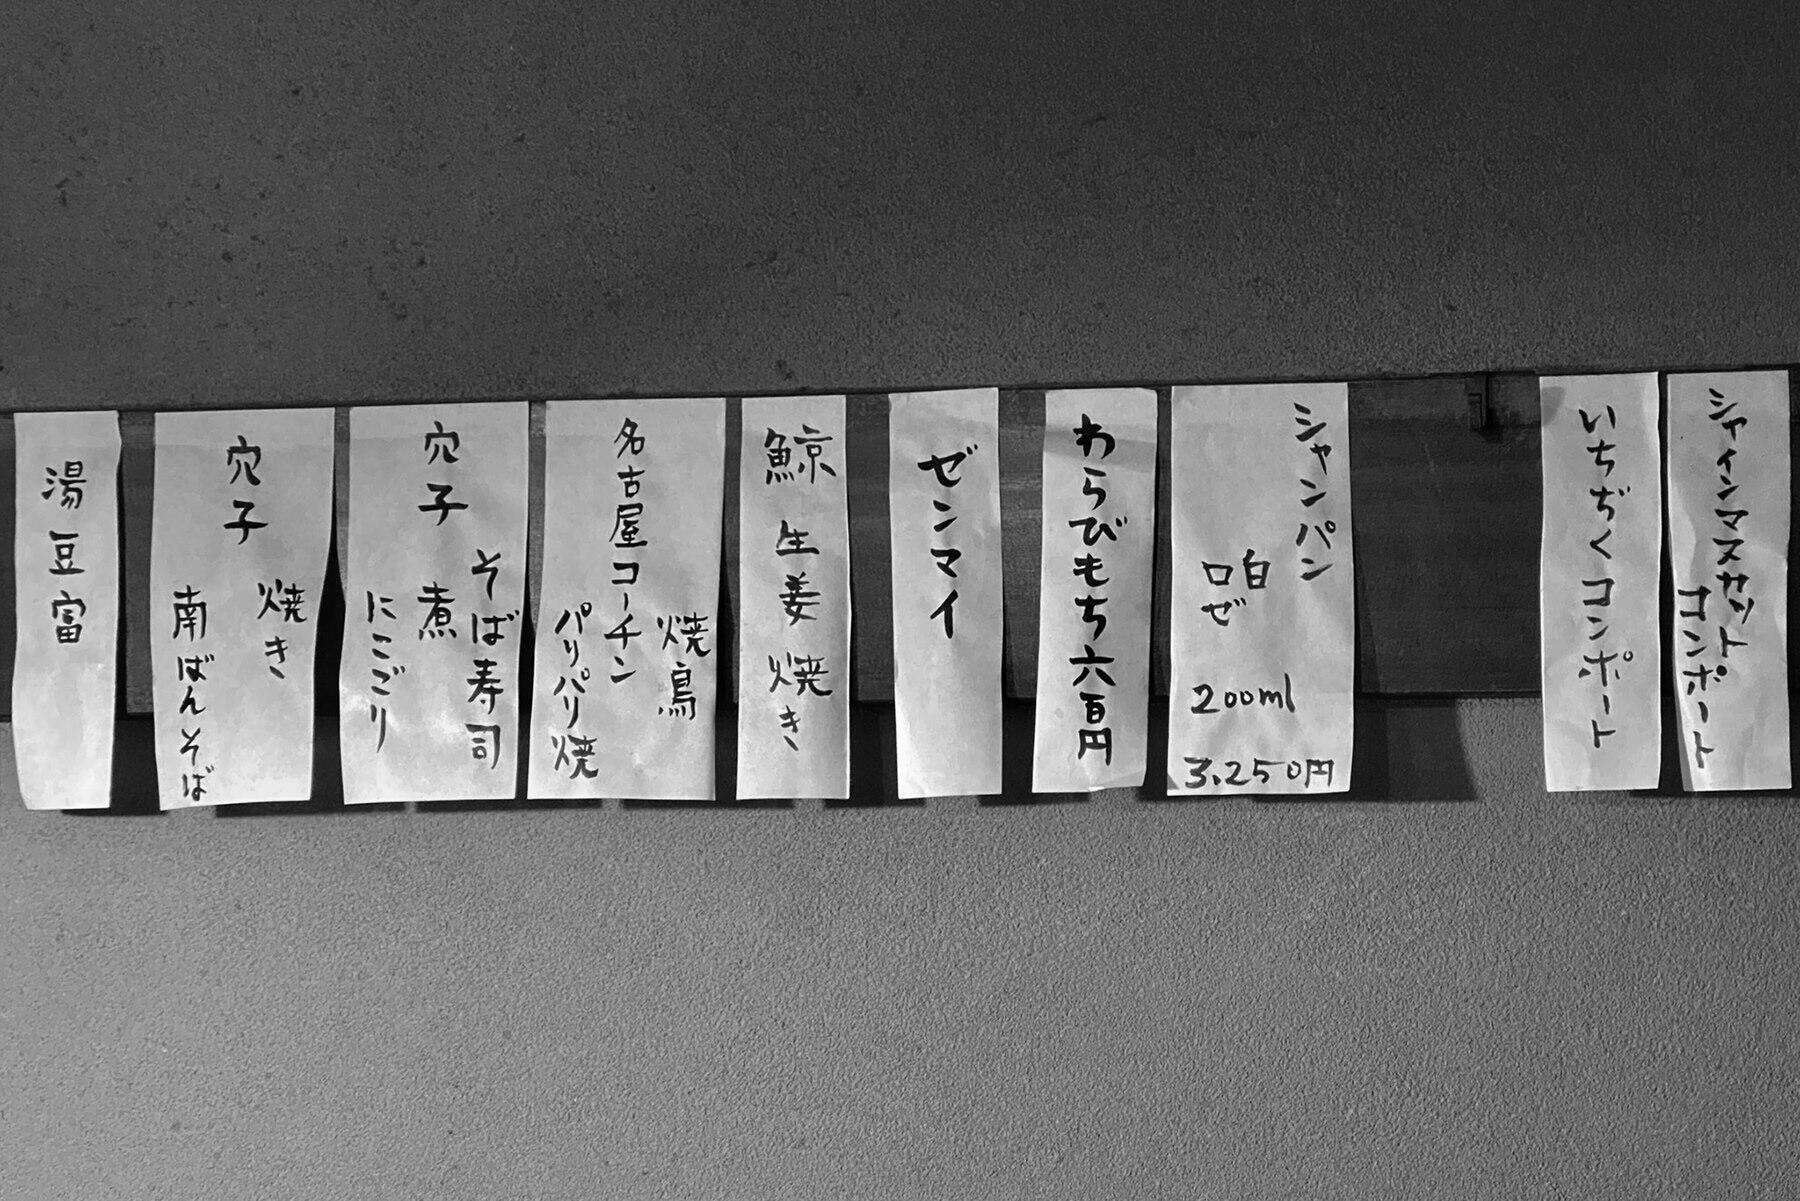 シャインマスカット
コンポート
いちぢくコンポート
シャンパン
白
ロゼ
200ml
3,250円
わらびもち六百円
ゼンマイ
鯨生姜焼き
名古屋コーチン
焼鳥
パリパリ焼
穴子
そば寿司
煮
にこごり
穴子
焼き
南ばんそば
湯豆富